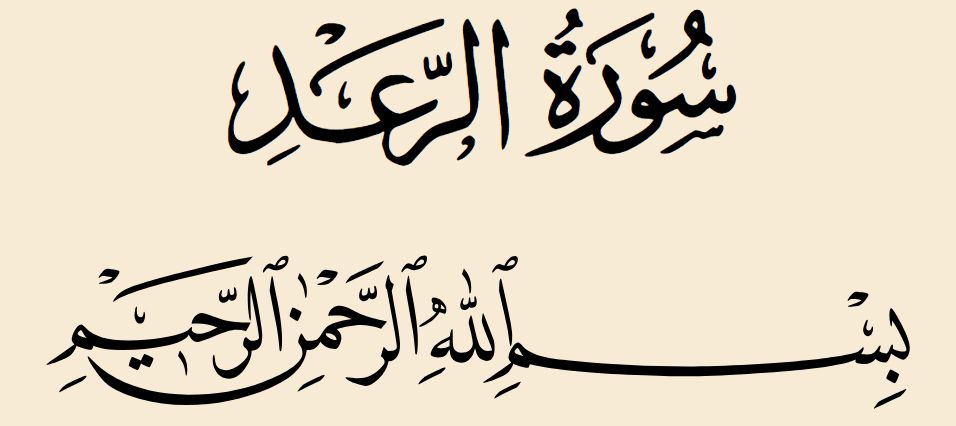 سُورَةُ الرَّعْدِ
بِسْمِ ٱللَّهِ ٱلرَّحْمَٰنِ ٱلرَّحِيمِ